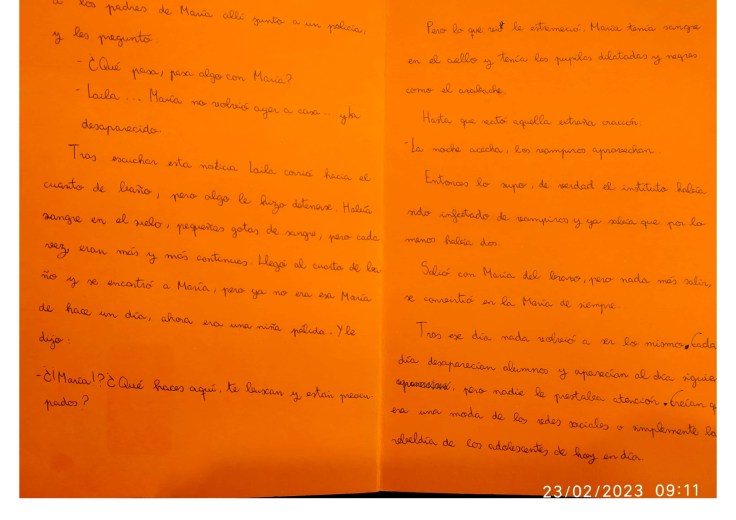 a los padres de María allí junto a un policía,
y les preguntó:
- ¿Qué pasa, pasa algo con María?
- Laila ... María no volvió ayer a casa ... y ha
desaparecido.
Tras escuchar esta noticia Laila corrió hacia el
cuarto de baño, pero algo le hizo detenerse. Había
sangre en el suelo, pequeñas gotas de sangre, pero cada
vez, eran más y más continuas. Llegó al cuarto de ba-
ño y se encontró a María, pero ya no era esa María
de hace un día, ahora era una niña pálida. Y le
dijo:
- ¿¡María!? ¿Qué haces aquí, te buscan y están preocu
pados?
Pero lo que le estremeció, María tenía sangre
en el cuello y tenía las pupilas dilatadas y negras
como el azabache.
Hasta que recitó aquella extraña oración:
- La noche acecha, los vampiros aprovechan.
Entonces lo supo, de verdad el instituto había
sido infectado de vampiros y ya sabía que por lo
menos había dos.
Salió con María del brazo, pero nada más salir,
se convirtió en la María de siempre.
Tras ese día nada volvió a ser lo mismo. Cada
día desaparecían alumnos y aparecían al día siguie
pero nadie le prestaba atención. Creían q
era una moda de las redes sociales o simplemente la
rebeldía de los adolescentes de hoy en día.
23/02/2023 09:11